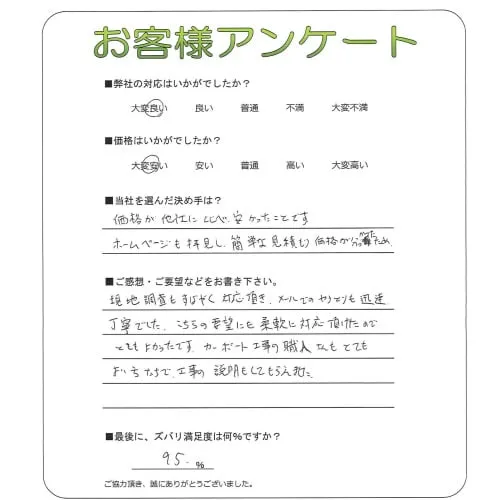 お客様アンケート
■弊社の対応はいかがでしたか？
大変良い 良い 普通 不満 大変不満
■価格はいかがでしたか？
大変安い 安い 普通 高い 大変高い
■当社を選んだ決め手は？
価格が他社に比べ安かったことです
ホームページも拝見し、簡単な見積り価格が分かったため
■ご感想・ご要望などをお書き下さい。
現地調査もすばやく対応頂き、メールでのやりとりも迅速
丁寧でした。こちらの要望にも柔軟に対応頂けたので
とてもよかったです。カーポート工事の職人さんもとても
よい方で、工事の説明もしてもらえ
■最後に、ズバリ満足度は何％ですか？
95. %
ご協力頂き、誠にありがとうございました。